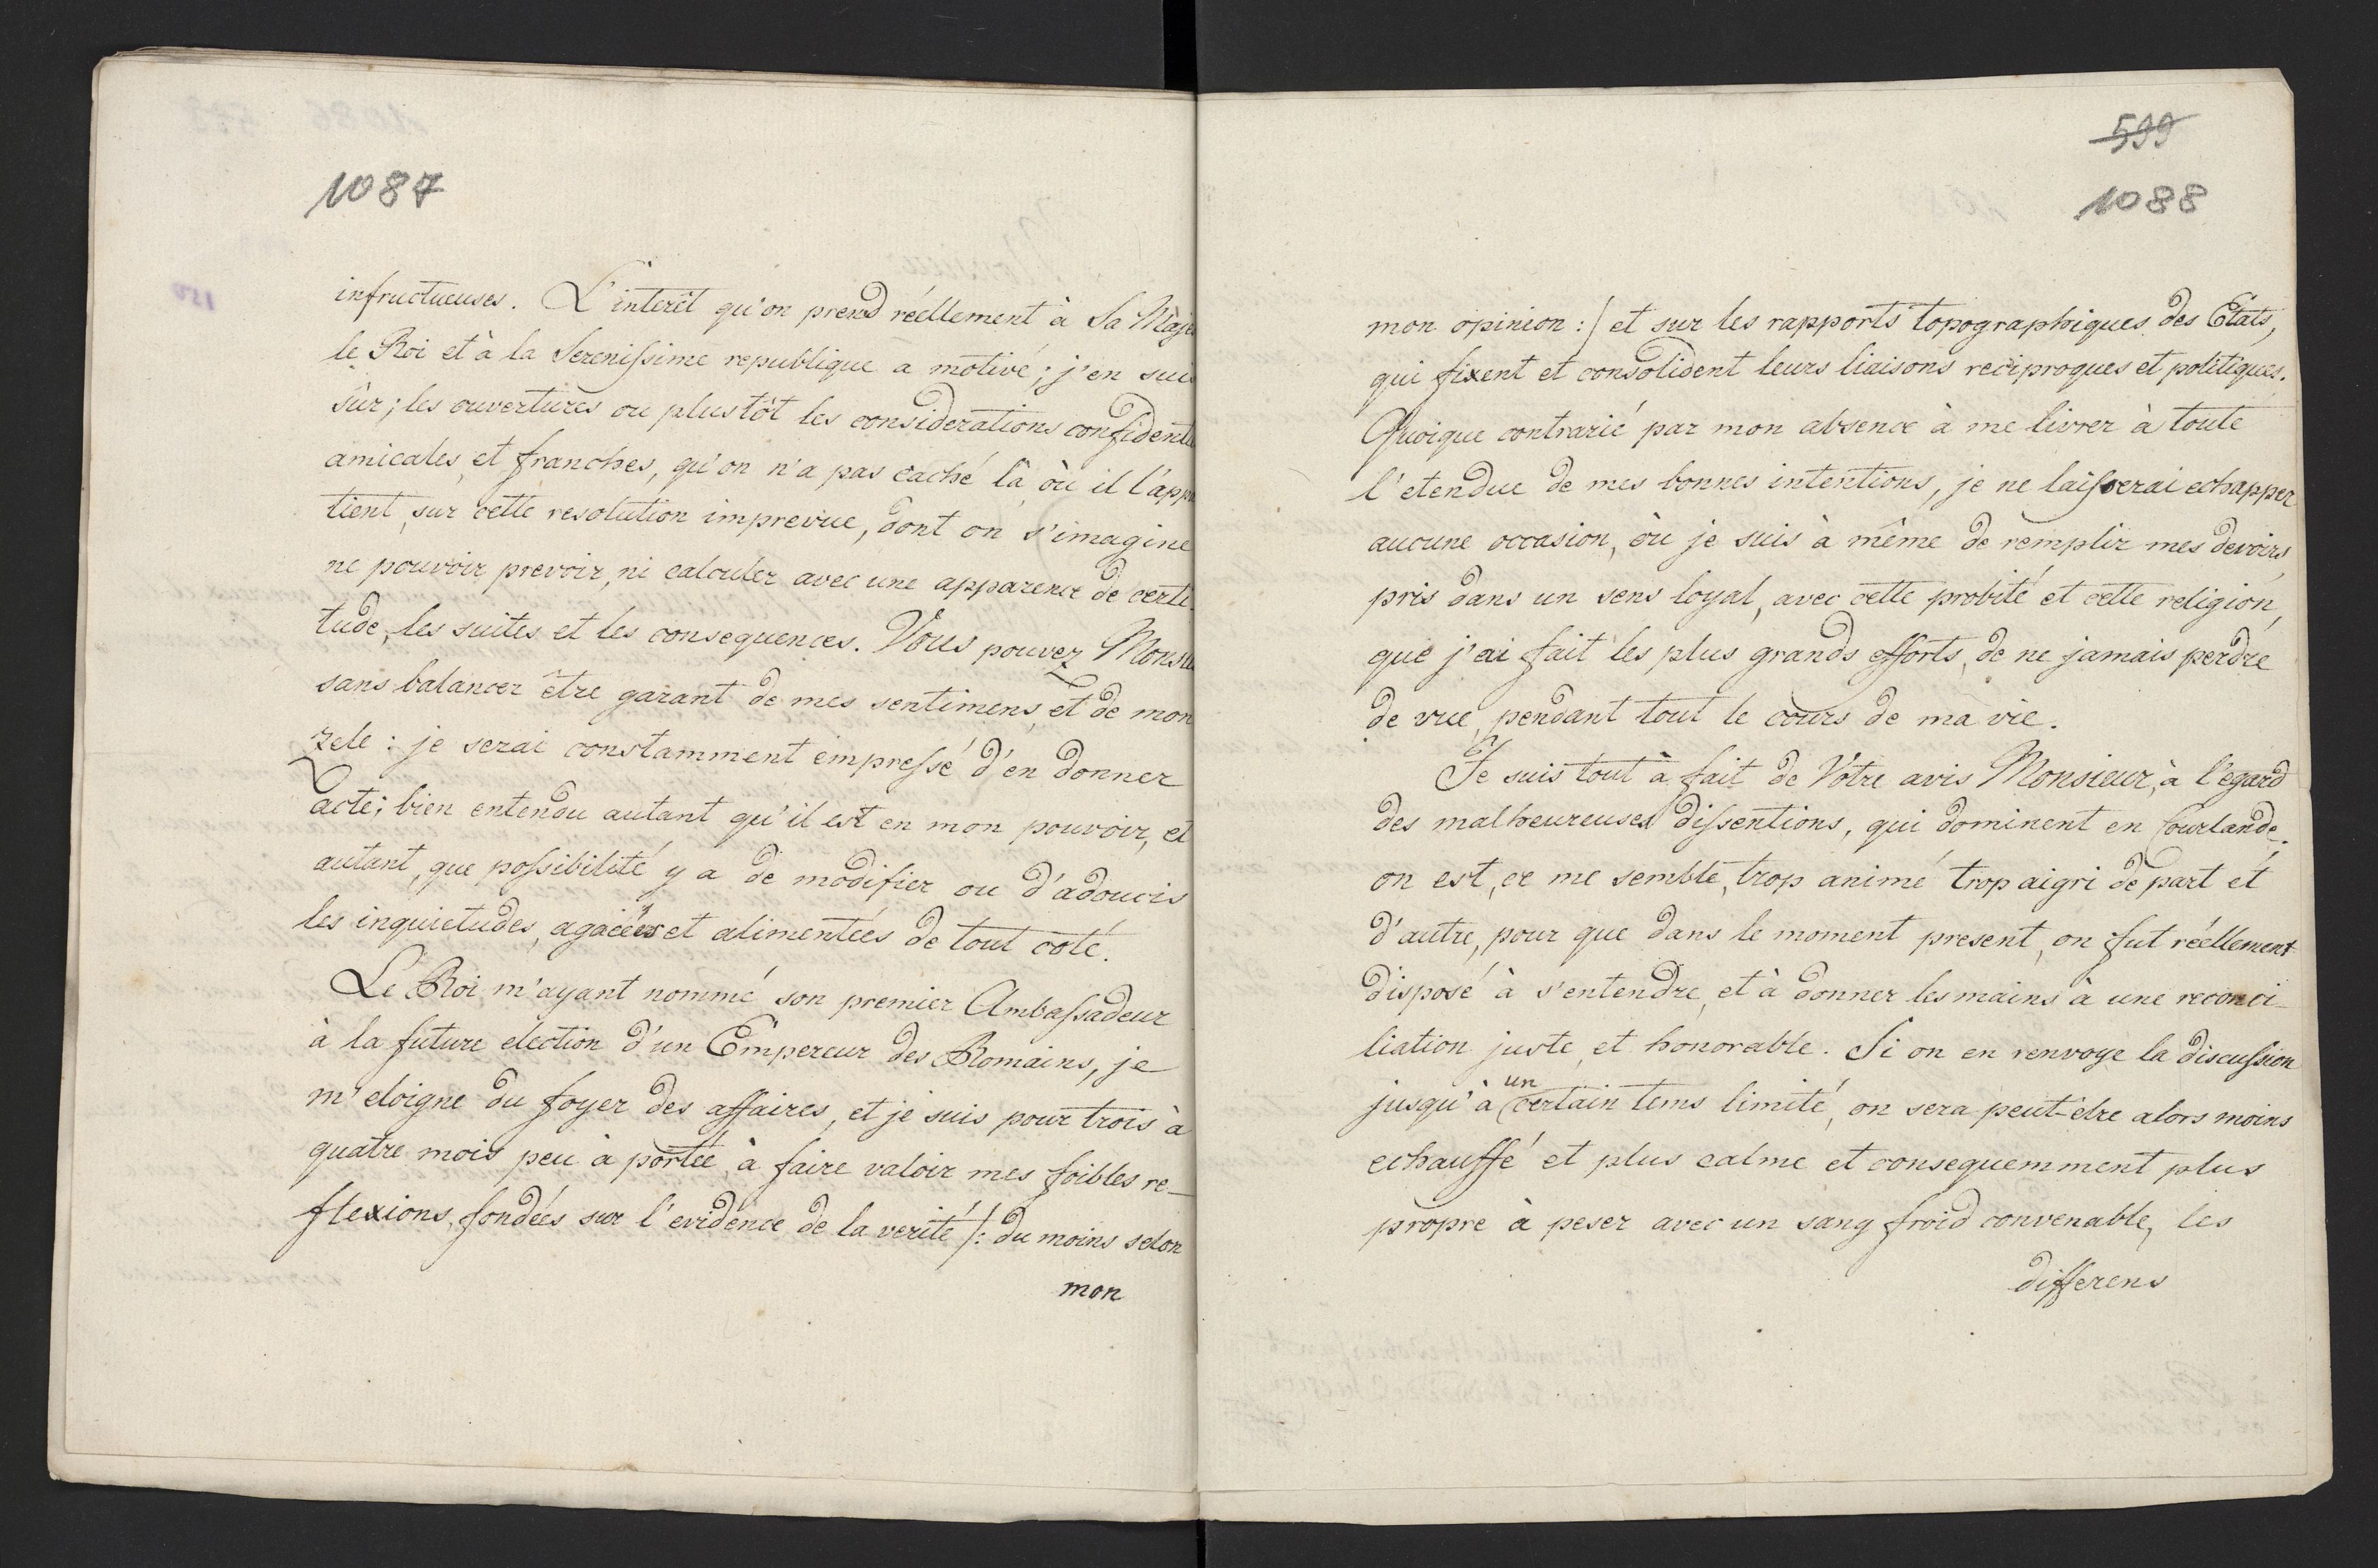 1087
infructueuses. L'interêt qu'on prend réellement à Sa Maje
le Roi et à la Serenissime republique a motivé; j'en suis
sûr; les ouvertures ou plustôt les considerations confidentie
amicales, et franches, qu'on n'a pas caché là, où il l'appa
tient, sur cette resolution imprevue, dont on s'imagine
ne pouvoir prevoir, ni calculer avec une apparence de certi-
tude, les suites et les consequences. Vous pouvez Monsie
sans balancer être garant de mes sentimens, et de mon
zele: je serai constamment empressé d'en donner
acte; bien entendu autant qu'il est en mon pouvoir, et
autant, que possibilité y a de modifier ou d'adoucir
les inquietudes, agacées et alimentées de tout coté.
Le Roi m'ayant nommé son premier Ambassadeur
à la future election d'un Empereur des Romains, je
m'eloigne du foyer des affaires, et je suis pour trois à
quatre mois peu à portée, à faire valoir mes foibles re-
flexions, fondées sur l'evidence de la verité /: du moins selon
mon
599
1088
mon opinion :/ et sur les rapports topographiques des Etats,
qui fixent et consolident leurs liaisons reciproques et politiques.
Quoique contrarié par mon absence à me livrer à toute
l'etendue de mes bonnes intentions, je ne laisserai echapper
aucune occasion, où je suis à même de remplir mes devoirs,
pris dans un sens loyal, avec cette probité et cette religion,
que j'ai fait les plus grands efforts, de ne jamais perdre
de vue, pendant tout le cours de ma vie.
Je suis tout à fait de Votre avis Monsieur, à l'egard
des malheureuses dissentions, qui dominent en Courlande.
on est, ce me semble, trop animé trop aigri de part et
d'autre, pour que dans le moment present, on fut réellement
disposé à s'entendre, et à donner les mains à une reconci-
liation juste, et honorable. Si on en renvoye la discussion
jusqu'à un certain tems limité, on sera peut-être alors moins
echauffé et plus calme et consequemment plus
propre à peser avec un sang froid convenable, les
differens